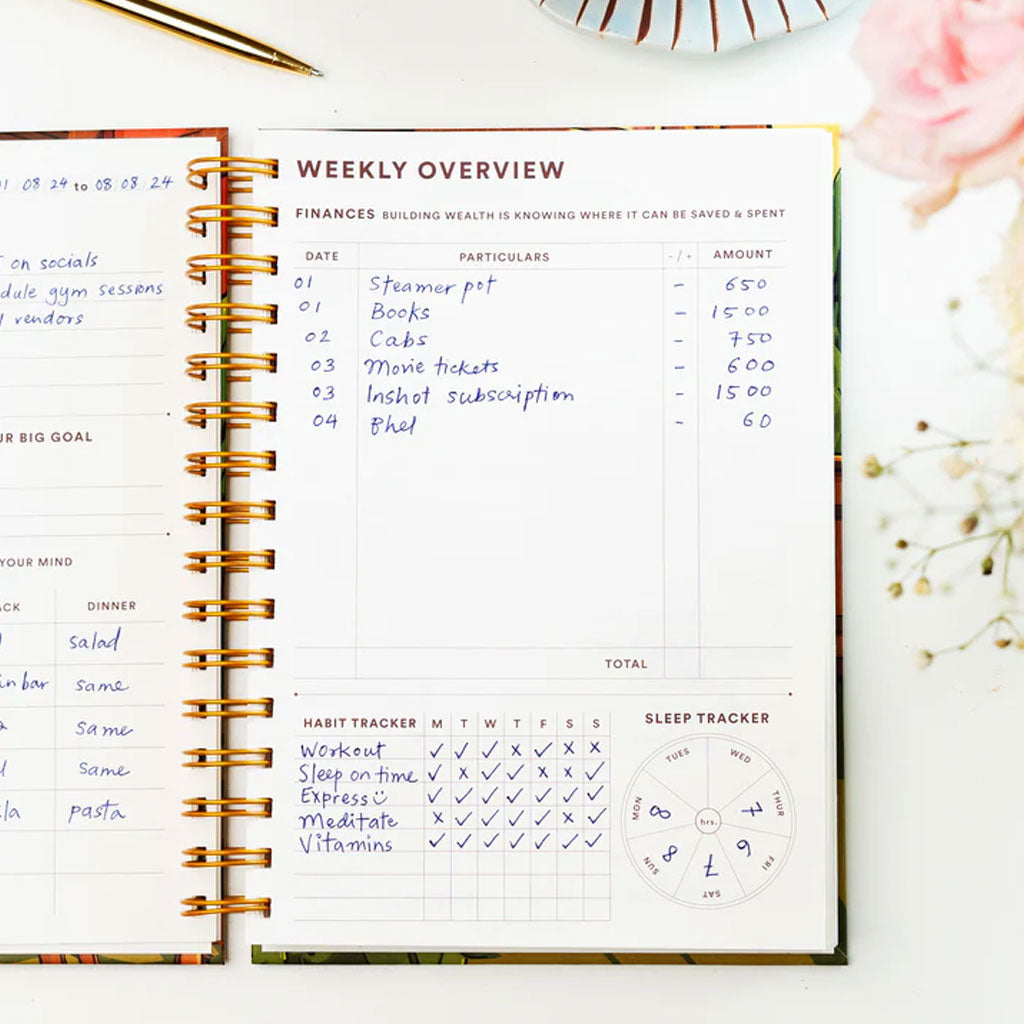 01 08 24 to 08 08 24
on socials
dule gym sessions
vendors
UR BIG GOAL
YOUR MIND
ACK DINNER
salad
in bar same
same
same
la pasta
WEEKLY OVERVIEW
FINANCES BUILDING WEALTH IS KNOWING WHERE IT CAN BE SAVED & SPENT
DATE PARTICULARS - / + AMOUNT
01 Steamer pot - 650
01 Books - 1500
02 Cabs - 750
03 Movie tickets - 600
03 Inshot subscription - 1500
04 Bhel - 60
TOTAL
HABIT TRACKER M T W T F S S
Workout ✓ ✓ ✓ x ✓ x x
Sleep on time ✓ x ✓ ✓ x x ✓
Express ☺ ✓ ✓ ✓ ✓ ✓ ✓ ✓
Meditate x ✓ ✓ ✓ ✓ x ✓
Vitamins ✓ ✓ ✓ ✓ ✓ ✓ ✓
SLEEP TRACKER
TUES WED
MON 8 7 THUR
hrs.
SUN 8 6 FRI
7
SAT